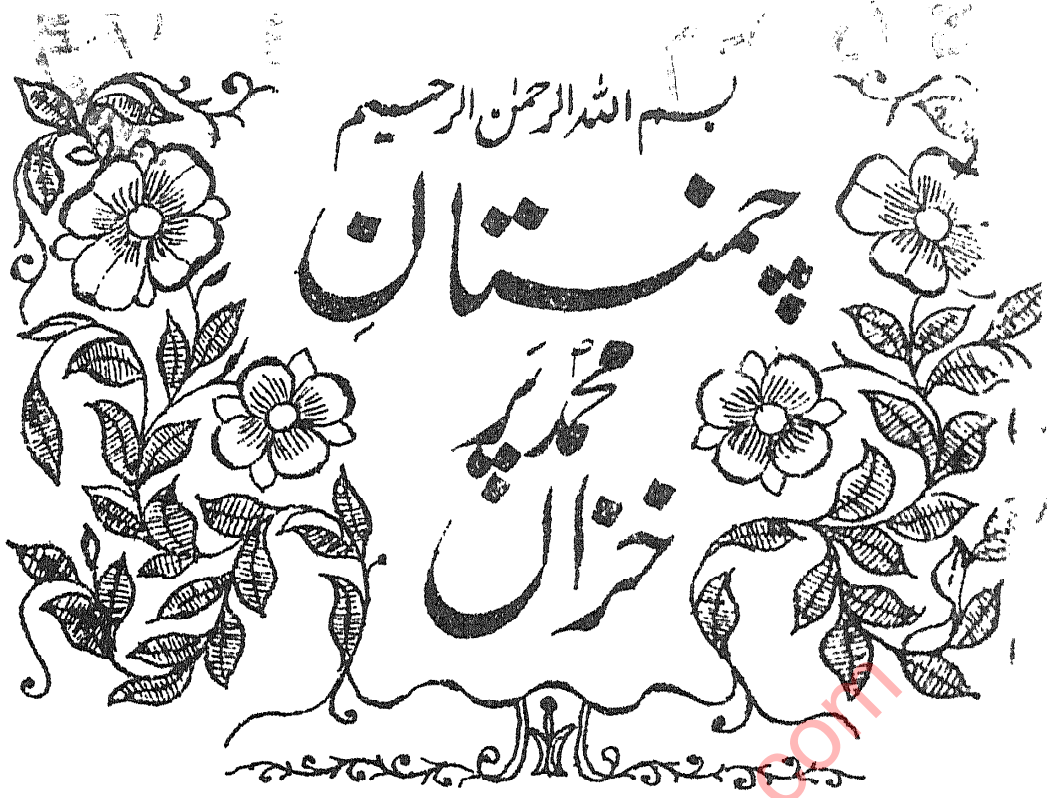 بسم اللہ الرحمٰن الرحیم
چمنستانِ
محمدؐ پَر
خزاں
com